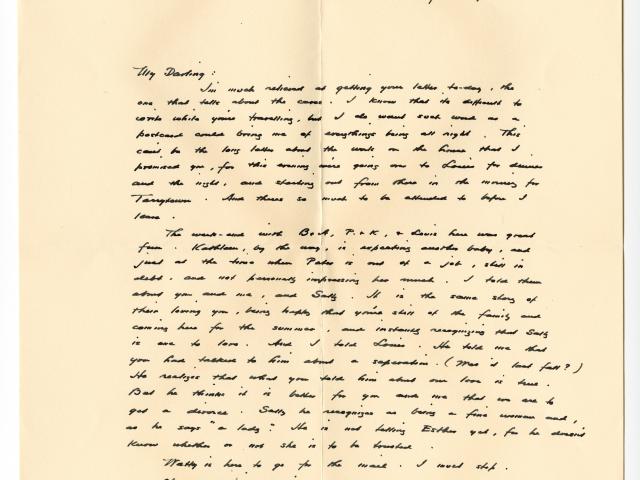 My Darling:
I'm much relieved at getting your letter to-day, the
one that talks about the cases. I know that its difficult to
write while you're travelling, but I do want such word as a
postcard could bring me of everythings being all right. This
can't be the long letter about the work on the house that I
promised you, for this evening we're going on to Louis for dinner
and the night, and starting out from there in the morning for
Tarrytown. And theres so much to be attended to before I
leave.
The week-end with B & A, P. & K, & Louis here was great
fun. Kathleen, by the way, is expecting another baby, and
just at the time when Peter is out of a job, still in
debt, and not personally impressing her much. I told them
about you and me, and Sally. It is the same story of
their loving you, being happy that you're still of the family and
coming here for the summer, and instantly recognizing that Sally
is one to love. And I told Louis. He told me that
you had talked to him about a separation. (Was it last fall?)
He realizes that what you told him about our love is true.
But he thinks it is better for you and me that we are to
get a divorce. Sally he recognizes as being a fine woman and,
as he says "a lady." He is not telling Esther yet, for he doesn't
know whether or not she is to be trusted.
Watty is here to go for the mail. I must stop.